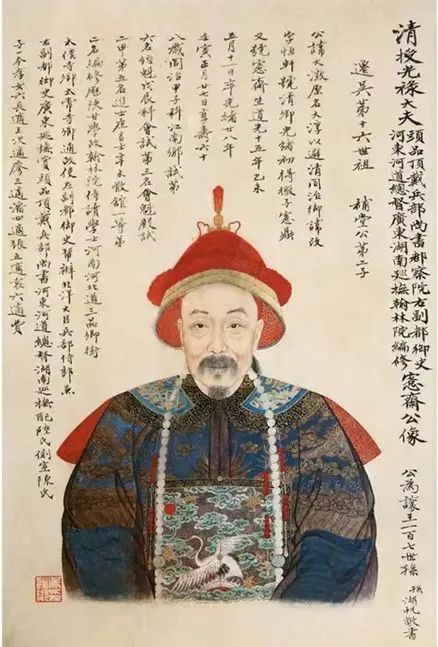 清授光祿大夫
頭品頂戴兵部尚書都察院右副都御史
河東河道總督廣東湖南巡撫翰林院編修
愙齋公像
公為讓王一百七世孫
孫湖帆敬書
遷吳第十六世祖　補堂公第二子
公諱大澂原名大淳以避清同治御諱改
字恒軒號清卿光緒初得愙鼎
又號愙齋生道光十五年乙未
五月十一日卒光緒廿八年
壬寅正月廿七日享壽六十
八歲同治甲子科江南鄉試第
六名經魁戊辰科會試第三名會魁殿試
二甲第五名進士庶吉士辛未散館一等第
二名編修歷陝甘學政翰林院侍讀學士河南河北道三品卿銜
太僕寺卿太常寺卿通政使左副都御史幫辦北洋大臣兵部侍郎兼
右副都御史廣東巡撫賞頭品頂戴兵部尚書河東河道總督湖南巡撫配陸氏側室陳氏
子一本孝女六長適王次適廖三適潘四適張五適袁六適費